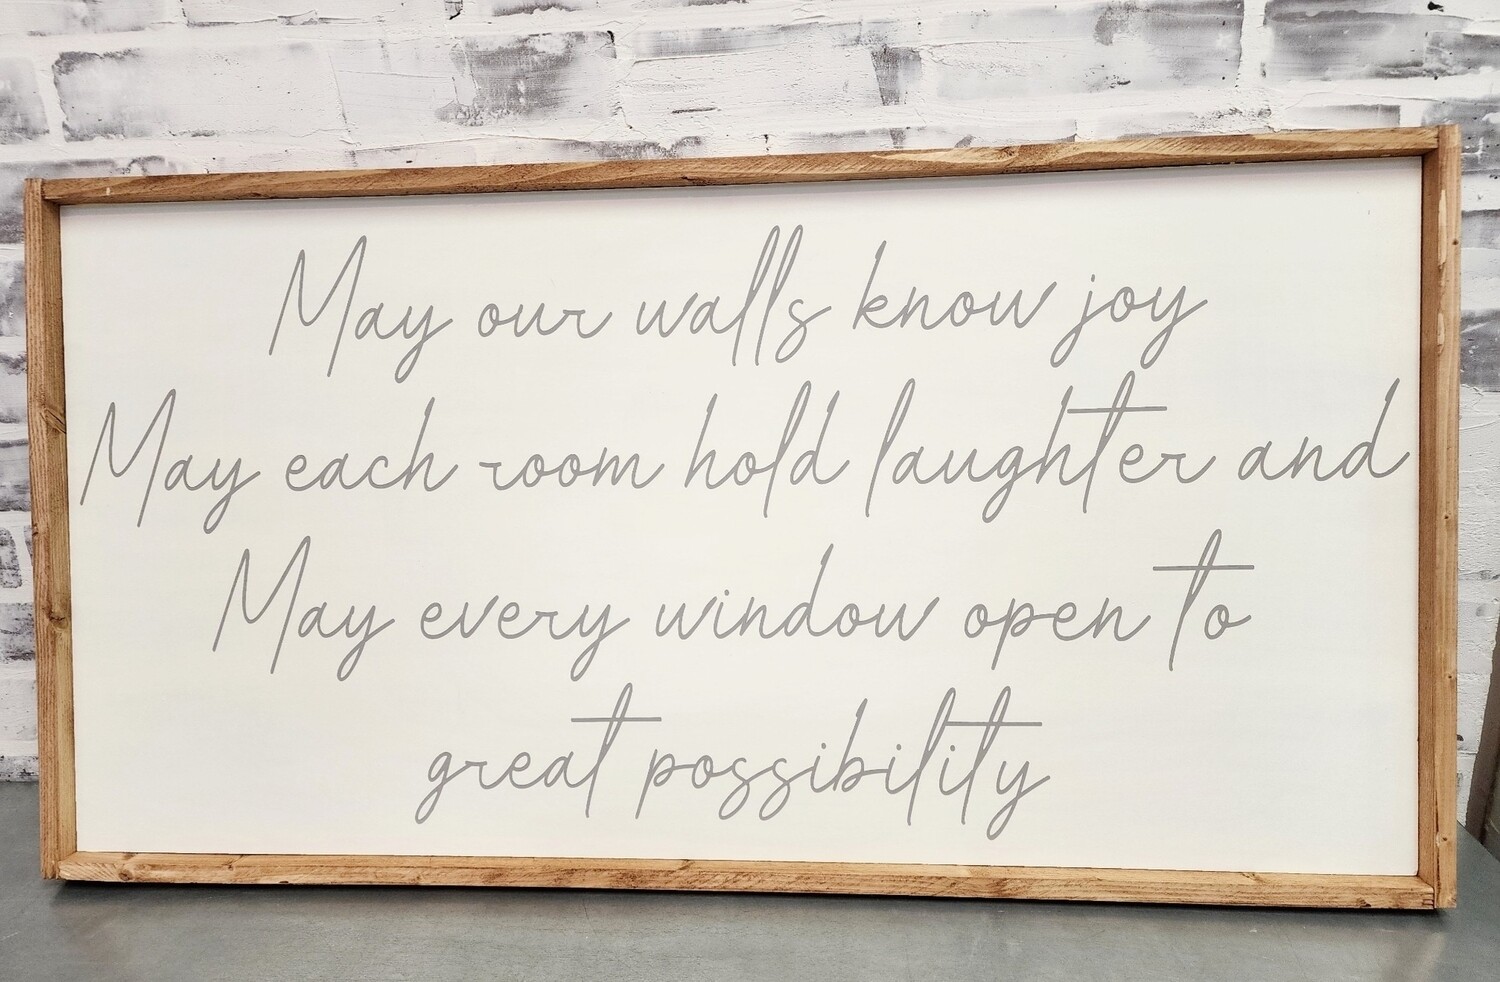 May our walls know joy
May each room hold laughter and
May every window open to
great possibility